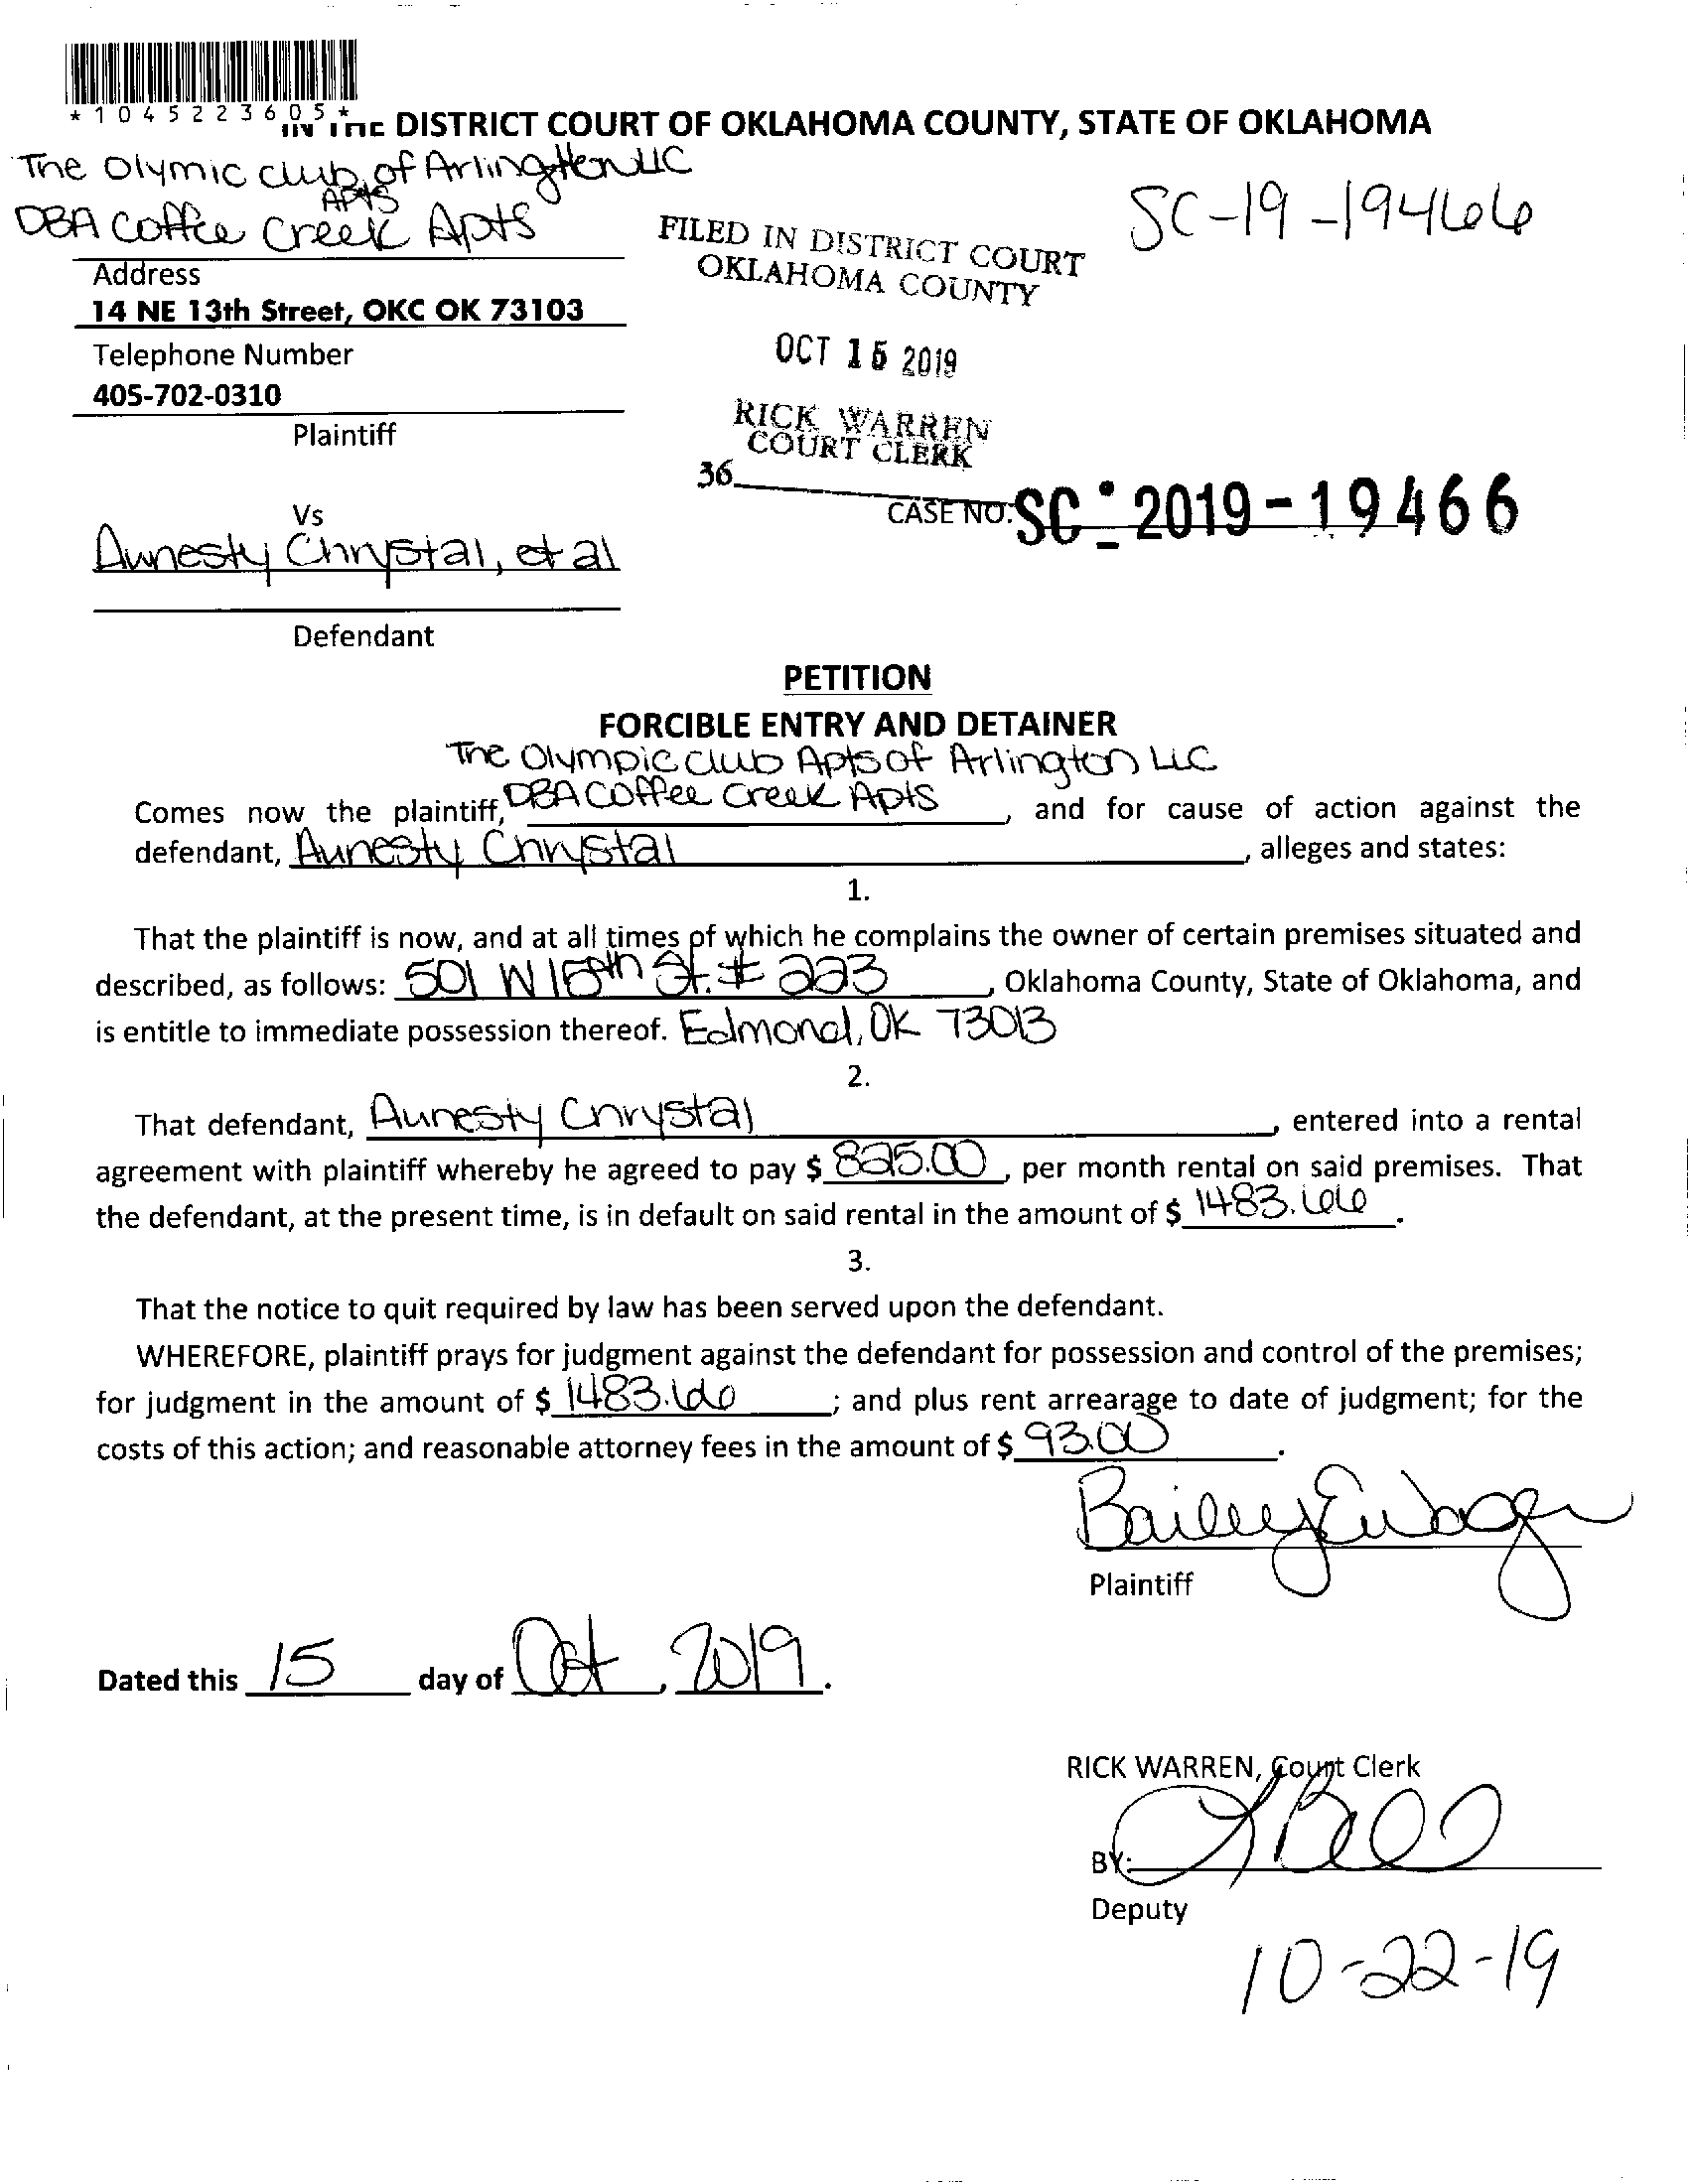 *1045223605*
IN THE DISTRICT COURT OF OKLAHOMA COUNTY, STATE OF OKLAHOMA
The Olymic club of Arlington LLC
APTS
DBA Coffee Creek Apts
SC-19-19466
Address
14 NE 13th Street, OKC OK 73103
Telephone Number
405-702-0310
Plaintiff
FILED IN DISTRICT COURT
OKLAHOMA COUNTY
OCT 15 2019
RICK WARREN
COURT CLERK
36
CASE NO: SC - 2019-19466
Vs
Aunesty Chrystal, et al
Defendant
PETITION
FORCIBLE ENTRY AND DETAINER
The Olympic club Apts of Arlington LLC
Comes now the plaintiff, DBA Coffee Creek Apts, and for cause of action against the
defendant, Aunesty Chrystal, alleges and states:
1.
That the plaintiff is now, and at all times of which he complains the owner of certain premises situated and
described, as follows: 501 W 15th St. # 223, Oklahoma County, State of Oklahoma, and
is entitle to immediate possession thereof. Edmond, OK 73013
2.
That defendant, Aunesty Chrystal, entered into a rental
agreement with plaintiff whereby he agreed to pay $ 825.00, per month rental on said premises. That
the defendant, at the present time, is in default on said rental in the amount of $ 1483.66.
3.
That the notice to quit required by law has been served upon the defendant.
WHEREFORE, plaintiff prays for judgment against the defendant for possession and control of the premises;
for judgment in the amount of $ 1483.66; and plus rent arrearage to date of judgment; for the
costs of this action; and reasonable attorney fees in the amount of $ 93.00.
Bailey
Plaintiff
Dated this 15 day of Oct, 2019.
RICK WARREN, Court Clerk
BY:
Deputy
10-22-19